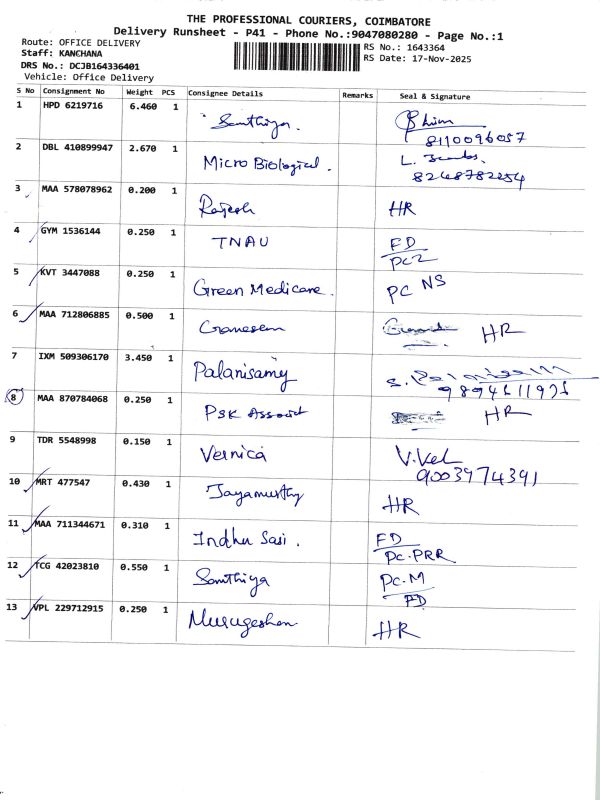 THE PROFESSIONAL COURIERS, COIMBATORE
Delivery Runsheet - P41 - Phone No.:9047080280 - Page No.:1
Route: OFFICE DELIVERY
RS No.: 1643364
Staff: KANCHANA
RS Date: 17-Nov-2025
DRS No.: DCJB164336401
Vehicle: Office Delivery
S No Consignment No Weight PCS Consignee Details Remarks Seal & Signature
1 HPD 6219716 6.460 1 Santhiya.
8110096057
2 DBL 410899947 2.670 1 Micro Biological. L.
8248782254
3 MAA 578078962 0.200 1 Rajesh HR
4 GYM 1536144 0.250 1 TNAU FD
PC2
5 KVT 3447088 0.250 1 Green Medicare. PC NS
6 MAA 712806885 0.500 1 HR
7 IXM 509306170 3.450 1 Palanisamy S.
9894611971
8 MAA 870784068 0.250 1 PSK HR
9 TDR 5548998 0.150 1 Vernica V.Vel
9003974391
10 MRT 477547 0.430 1 Jayamurthy HR
11 MAA 711344671 0.310 1 Indhu Sasi. FD
PC.PRR
12 TCG 42023810 0.550 1 Santhiya PC.M
FD
13 VPL 229712915 0.250 1 Murugeshan HR